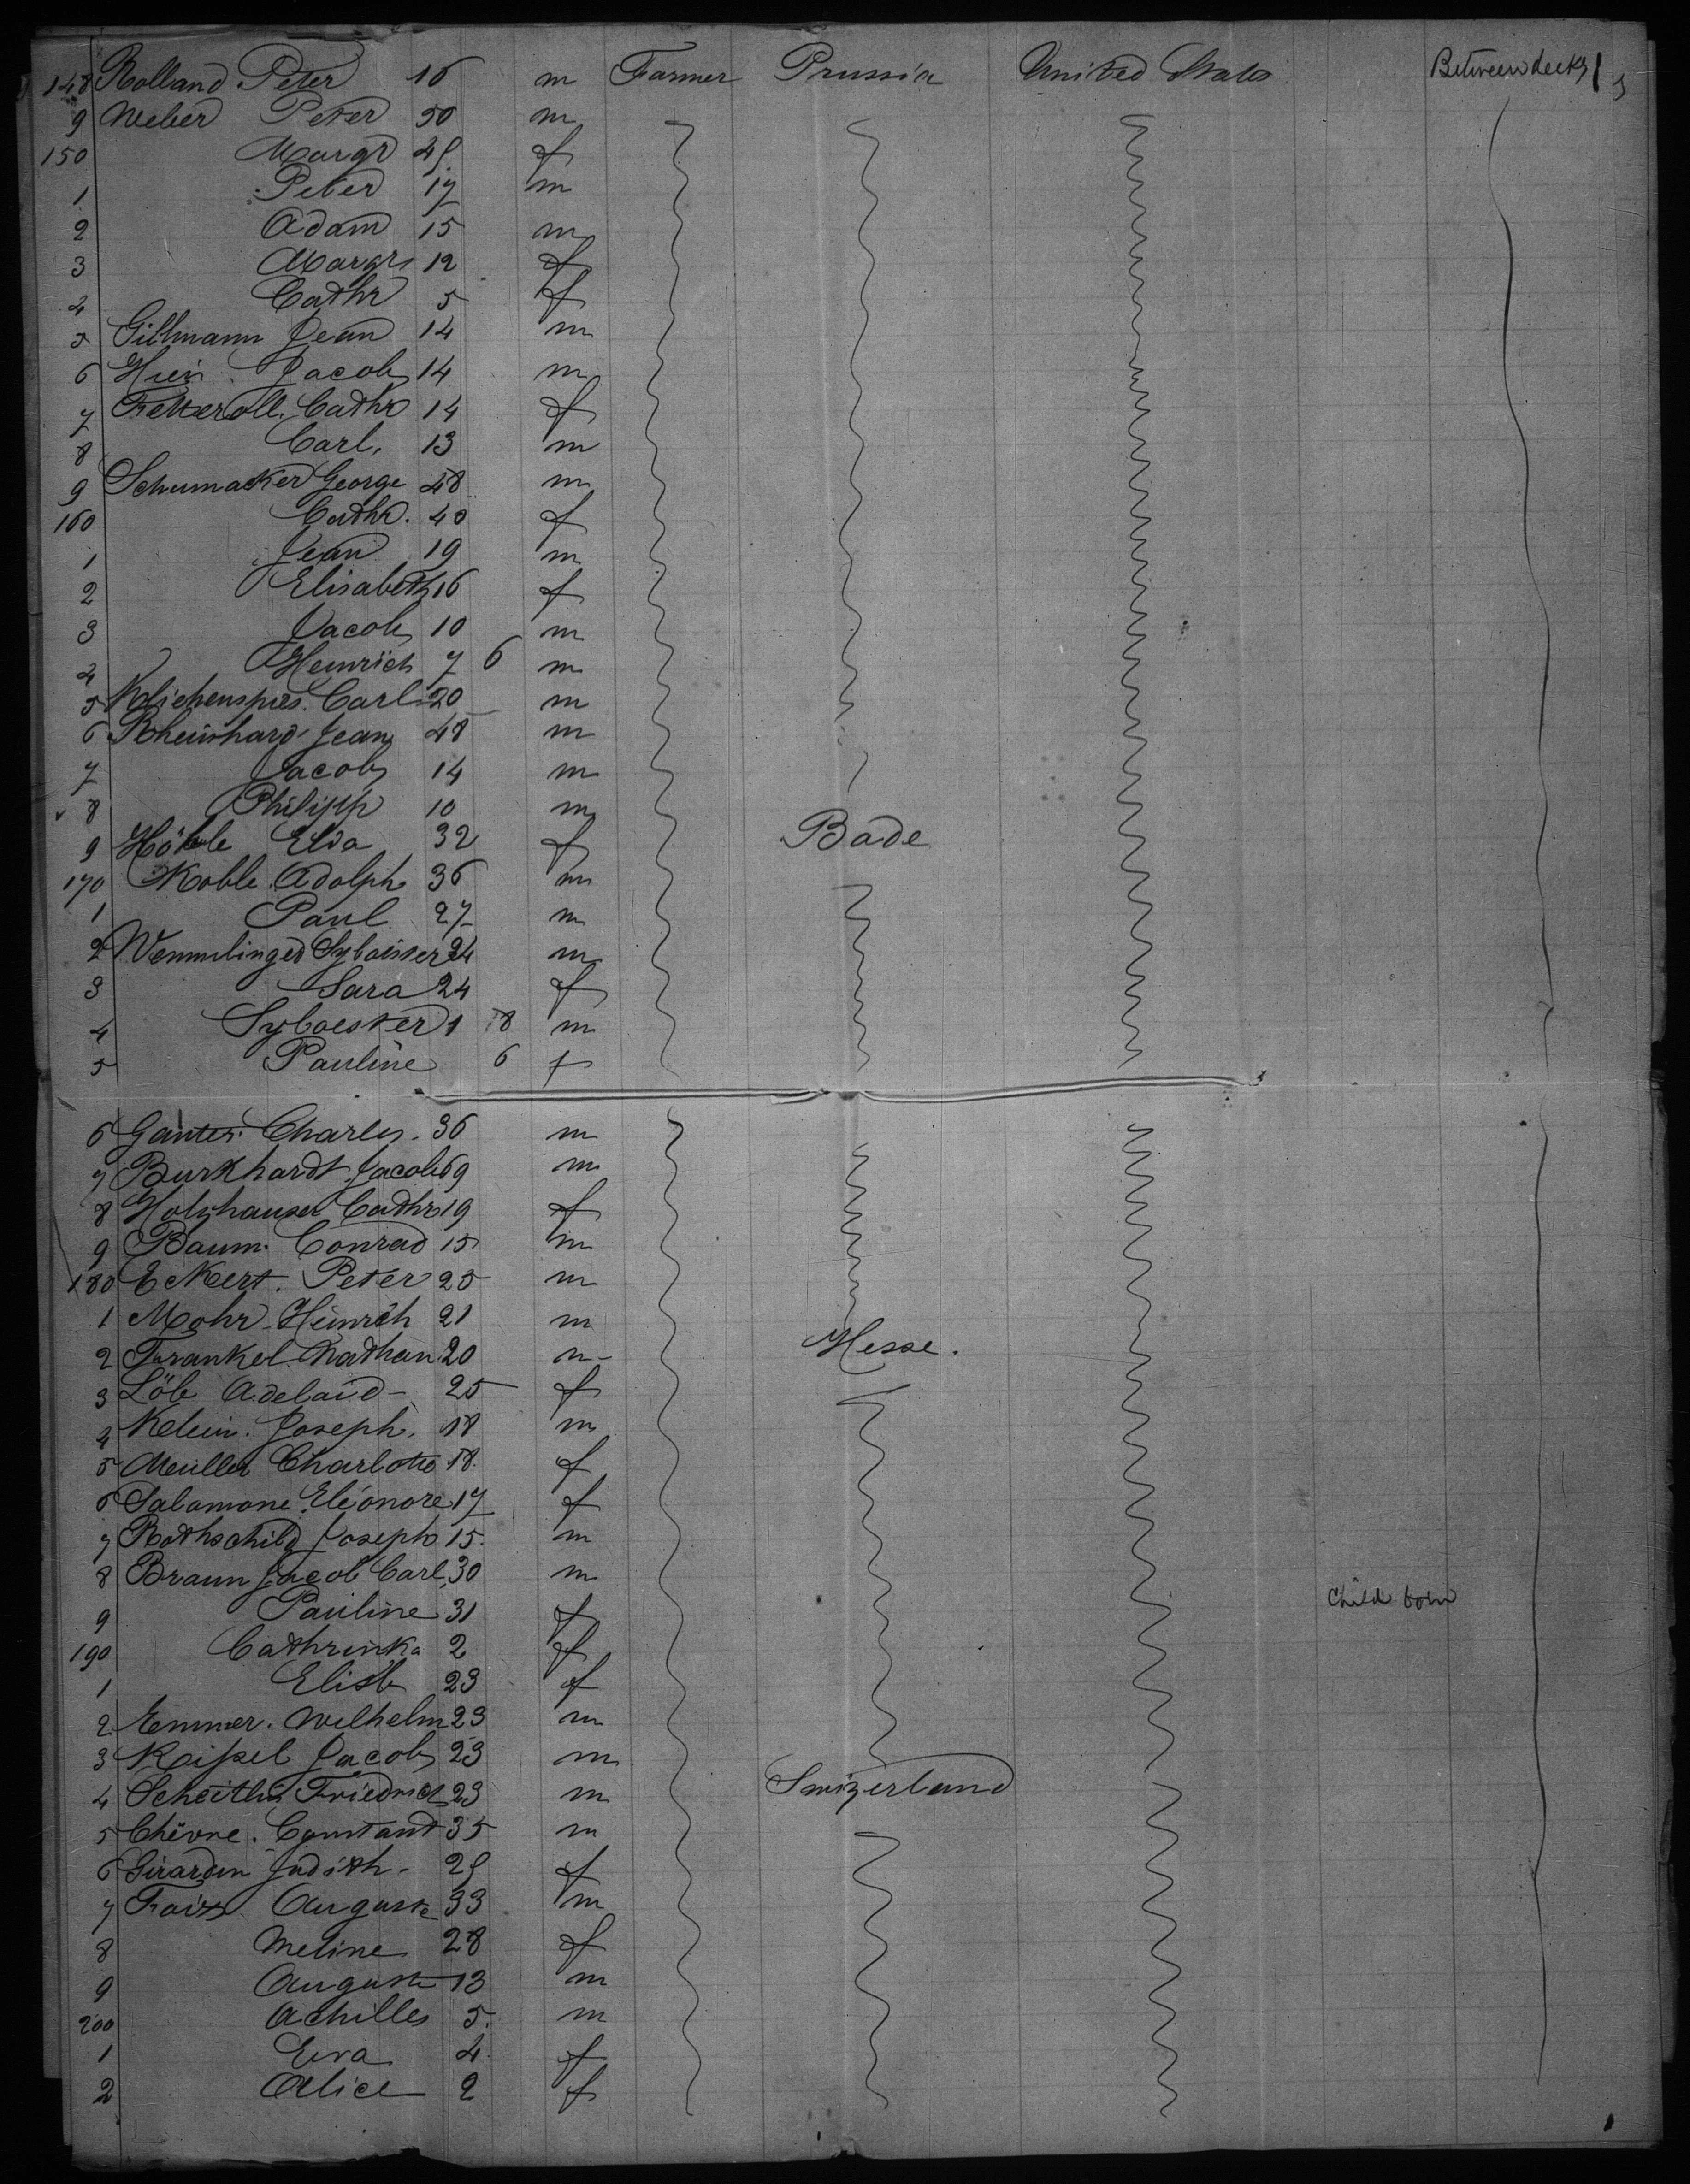 148 Rolland Peter 16 m Farmer Prussia United States Between decks
9 Weber Peter 50 m
150 Margr 45 f
1 Peter 17 m
2 Adam 15 m
3 Margr 12 f
4 Cathr 5 f
5 Gillmann Jean 14 m
6 Hein Jacob 14 m
7 Fetteroll Cathr 14 f
8 Carl 13 m
9 Schumacker George 48 m
160 Cathr. 40 f
1 Jean 19 m
2 Elisabeth 16 f
3 Jacob 10 m
4 Heinrich 7 6 m
5 Carl 20 m
6 Rheinhard Jean 48 m
7 Jacob 14 m
8 Philipp 10 m
9 32 f Bade
170 Koble Adolph 36 m
1 Paul 27 m
2 Wemmlinger Sylvester 24 m
3 Sara 24 f
4 Sylvester 1 8 m
5 Pauline 6 f
6 Ganter Charles 36 m
7 Burkhardt Jacob 69 m
8 Holzhauser Cathr 19 f
9 Baum Conrad 15 m
180 Eckert Peter 25 m
1 Mohr Heinrich 21 m
2 Frankel Nathan 20 m Hesse.
3 Löb Adelaid 25 f
4 Klein Joseph 18 m
5 Meuller Charlotte 18 f
6 Salamone Eléonore 17 f
7 Rothschild Joseph 15 m
8 Braun Jacob Carl 30 m
9 Pauline 31 f Child born
190 Cathrinka 2 f
1 Elisb 23 f
2 Emmer Wilhelm 23 m
3 Keipel Jacob 23 m
4 Scheitlin Friedrich 23 m Swizerland
5 Chèvre Constant 35 m
6 Girardin Judith 25 f
7 Auguste 33 m
8 Meline 28 f
9 Auguste 13 m
200 Achilles 5 m
1 Eva 4 f
2 Alice 2 f